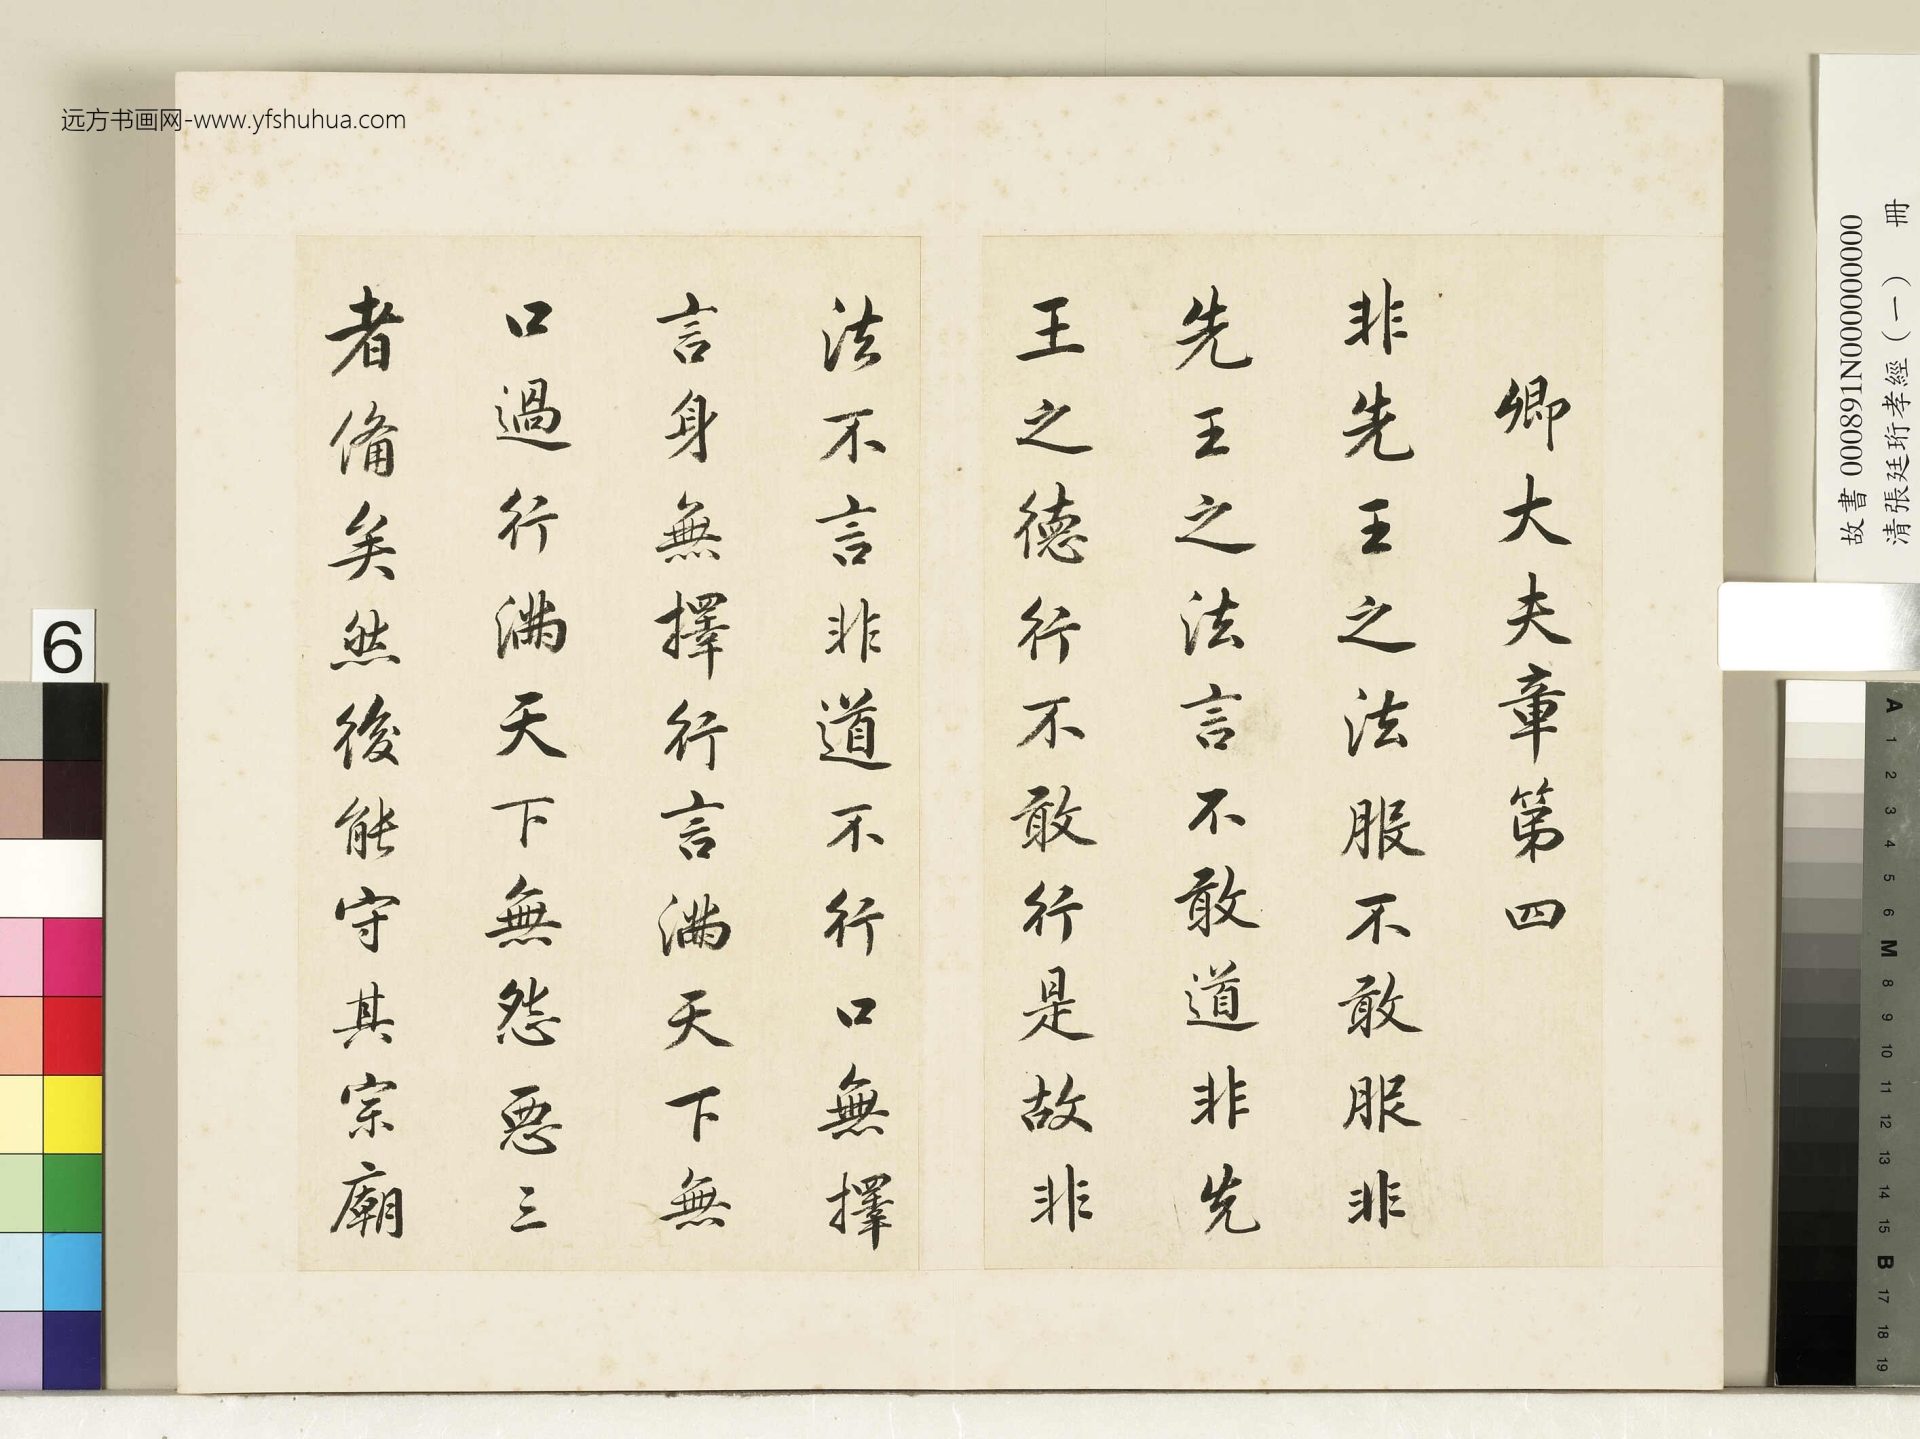 远方书画网-www.yfshuhua.com
卿大夫章第四
非先王之法服不敢服非
先王之法言不敢道非先
王之德行不敢行是故非
法不言非道不行口無擇
言身無擇行言滿天下無
口過行滿天下無怨惡三
者備矣然後能守其宗廟
故書 000891N000000000
清張廷珩孝經（一）　冊
6
A
1
2
3
4
5
6
M
8
9
10
11
12
13
14
15
B
17
18
19